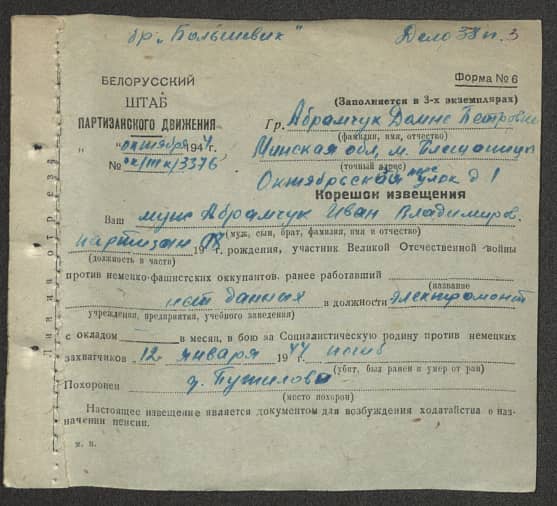 бр. „Большевик"
Дело 38 п. 3
БЕЛОРУССКИЙ
ШТАБ
ПАРТИЗАНСКОГО ДВИЖЕНИЯ
„ " октября 1944 г.
№ ок/тк/3376
Форма № 6
(Заполняется в 3-х экземплярах)
Гр. Абрамчук Домне Петровне
(фамилия, имя, отчество)
Минская обл, м. Плещаницы
(точный адрес)
Октябрьской д 1
Корешок извещения
Ваш муж Абрамчук Иван Владимиров.
(муж, сын, брат, фамилия, имя и отчество)
партизан г. рождения, участник Великой Отечественной войны
(должность в части)
против немецко-фашистских оккупантов. ранее работавший
(название
нет данных в должности электромонт
учреждения, предприятия, учебного заведения)
с окладом в месяц, в бою за Социалистическую родину против немецких
захватчиков 12 января 1944 г. погиб
(убит, был ранен и умер от ран)
Похоронен д. Пужилово
(место похорон)
Настоящее извещение является документом для возбуждения ходатайства о наз-
начении пенсии.
м. п.
Линия отреза